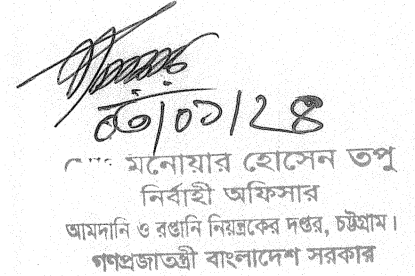 ০৩/০১/২৪
মনোয়ার হোসেন তপু
নির্বাহী অফিসার
আমদানি ও রপ্তানি নিয়ন্ত্রকের দপ্তর, চট্টগ্রাম।
গণপ্রজাতন্ত্রী বাংলাদেশ সরকার